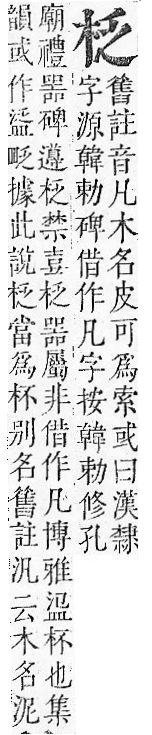 柉
舊註音凡木名皮可爲索或曰漢隸
字源韓勅碑借作凡字按韓勅修孔
廟禮器碑遵柉禁壴柉器屬非借作凡博雅盕杯也集
韻或作盕眨據此說柉當爲杯别名舊註汎云木名泥